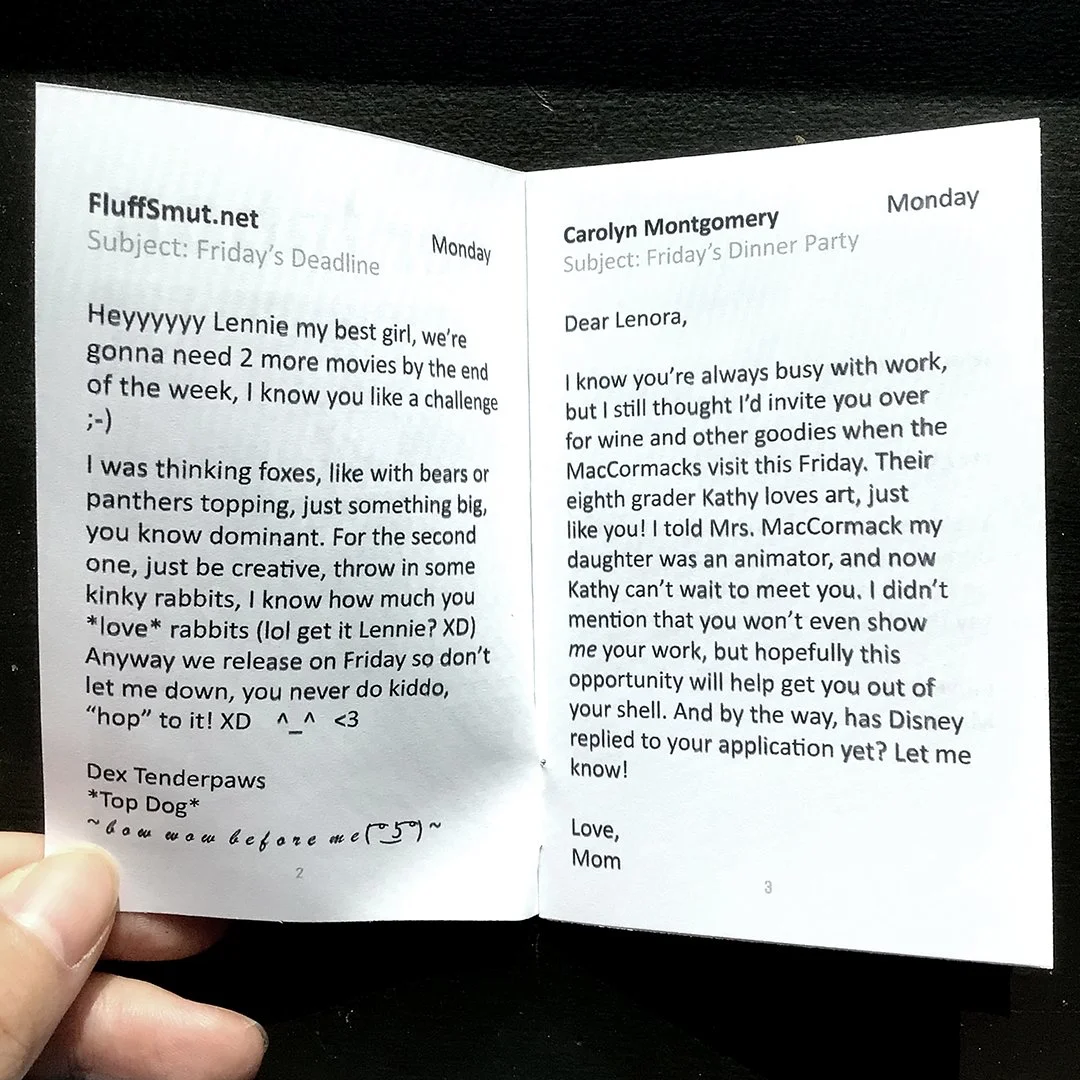 FluffSmut.net
Subject: Friday's Deadline
Monday
Heyyyyyy Lennie my best girl, we're
gonna need 2 more movies by the end
of the week, I know you like a challenge
;-)
I was thinking foxes, like with bears or
panthers topping, just something big,
you know dominant. For the second
one, just be creative, throw in some
kinky rabbits, I know how much you
*love* rabbits (lol get it Lennie? XD)
Anyway we release on Friday so don't
let me down, you never do kiddo,
“hop” to it! XD ^_^ <3
Dex Tenderpaws
*Top Dog*
~bow wow before me( ͡° ͜ʖ ͡°)~
2
Carolyn Montgomery
Monday
Subject: Friday's Dinner Party
Dear Lenora,
I know you're always busy with work,
but I still thought I'd invite you over
for wine and other goodies when the
MacCormacks visit this Friday. Their
eighth grader Kathy loves art, just
like you! I told Mrs. MacCormack my
daughter was an animator, and now
Kathy can't wait to meet you. I didn't
mention that you won't even show
me your work, but hopefully this
opportunity will help get you out of
your shell. And by the way, has Disney
replied to your application yet? Let me
know!
Love,
Mom
3